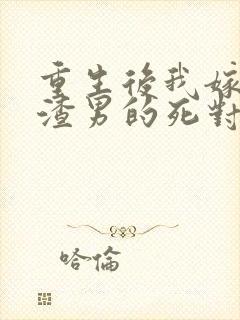 重生後我嫁
渣男的死對
哈倫